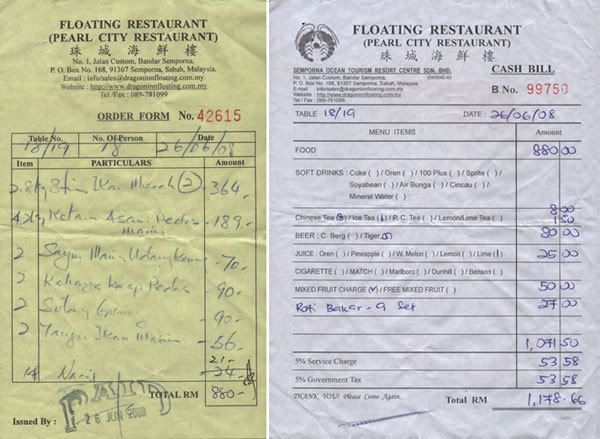 FLOATING RESTAURANT
(PEARL CITY RESTAURANT)
珠 城 海 鮮 樓
No. 1, Jalan Custom, Bandar Semporna,
P. O. Box No. 168, 91307 Semporna, Sabah, Malaysia.
Email : info/sales@dragoninnfloating.com.my
Website : http://www.dragoninnfloating.com.my
Tel / Fax : 089-781099
ORDER FORM No. 42615
Table No. No. Of Person Date
18/19 18 26/06/08
Item PARTICULARS Amount
Ikan Merah (2) 364.-
Ketam Asam Pedas 189.-
2 Sayur 70.-
2 90.-
2 Sotong 90.-
2 Ikan 56.-
21.-
14 Nasi 24.-
TOTAL RM 880.-
Issued By :
PAID
26 JUN 2008
FLOATING RESTAURANT
(PEARL CITY RESTAURANT)
珠 城 海 鮮 樓
SEMPORNA OCEAN TOURISM RESORT CENTRE SDN. BHD.
No. 1, Jalan Custom,
P. O. Box No. 168, 91307 Semporna, Sabah, Malaysia.
Email : info/sales@dragoninnfloating.com.my
Website : http://www.dragoninnfloating.com.my
Tel/Fax : 089-781099
CASH BILL
B No. 99750
TABLE 18/19 DATE : 26/06/08
MENU ITEMS Amount
FOOD 880 00
SOFT DRINKS : Coke ( ) / Oren ( ) / 100 Plus ( ) / Sprite ( ) /
Soyabean ( ) / Air Bunga ( ) / Cincau ( ) /
Mineral Water ( ) 8 00
Chinese Tea (8) / Ice Tea (1) / P. C. Tea ( ) / Lemon/Lime Tea ( ) 1 50
BEER : C. Berg ( ) / Tiger (5) 80 00
JUICE : Oren ( ) / Pineapple ( ) / W. Melon ( ) / Lemon ( ) / Lime ( ) 25 00
CIGARETTE ( ) / MATCH ( ) / Marlboro ( ) / Dunhill ( ) / Benson ( )
MIXED FRUIT CHARGE ( ) / FREE MIXED FRUIT ( ) 50 00
Roti Bakar - 9 Set 27 00
1,071 50
5% Service Charge 53 58
5% Government Tax 53 58
THANK YOU! Please Come Again. Total RM 1,178.66